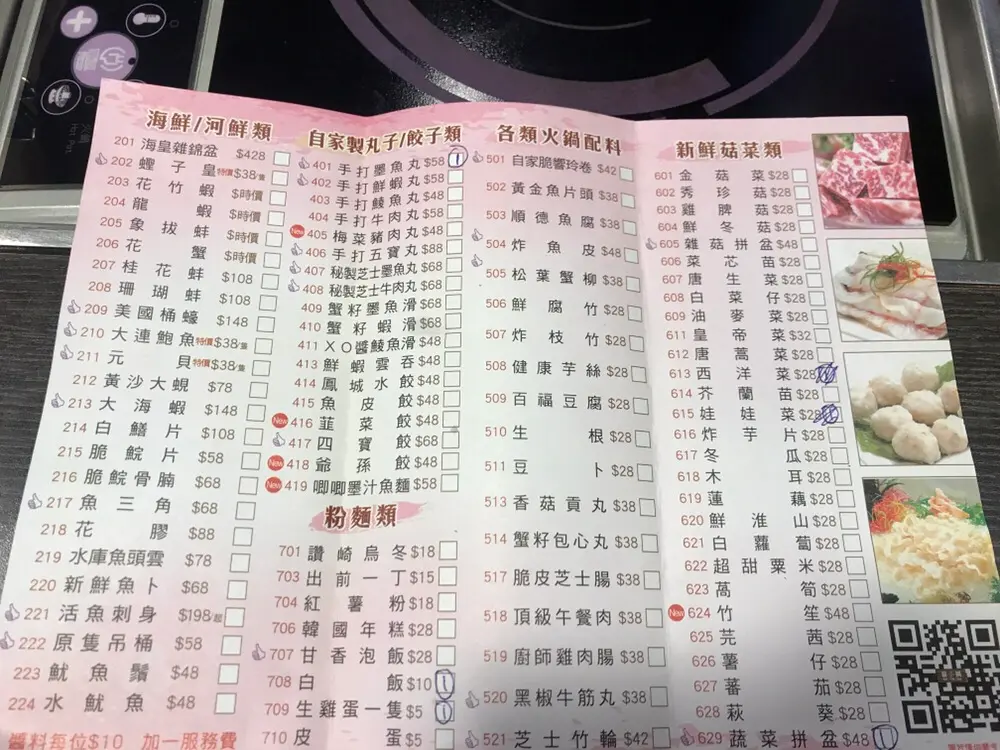 海鮮/河鮮類
201 海皇雜錦盆 $428
202 蟶子皇 特價$38/隻
203 花竹蝦 $時價
204 龍蝦 $時價
205 象拔蚌 $時價
206 花蟹 $時價
207 桂花蚌 $108
208 珊瑚蚌 $108
209 美國桶蠔 $148
210 大連鮑魚 特價$38/隻
211 元貝 特價$38/隻
212 黃沙大蜆 $78
213 大海蝦 $148
214 白鱔片 $108
215 脆鯇片 $58
216 脆鯇骨腩 $68
217 魚三角 $68
218 花膠 $88
219 水庫魚頭雲 $78
220 新鮮魚卜 $68
221 活魚刺身 $198/起
222 原隻吊桶 $58
223 魷魚鬚 $48
224 水魷魚 $48
醬料每位$10 加一服務費
自家製丸子/餃子類
401 手打墨魚丸 $58 1
402 手打鮮蝦丸 $58
403 手打鯪魚丸 $48
404 手打牛肉丸 $58
New 405 梅菜豬肉丸 $48
406 手打五寶丸 $88
407 秘製芝士墨魚丸 $68
408 秘製芝士牛肉丸 $68
409 蟹籽墨魚滑 $68
410 蟹籽蝦滑 $68
411 XO醬鯪魚滑 $48
413 鮮蝦雲吞 $48
414 鳳城水餃 $48
415 魚皮餃 $48
New 416 韮菜餃 $48
417 四寶餃 $68
New 418 爺孫餃 $48
New 419 唧唧墨汁魚麵 $58
粉麵類
701 讚崎烏冬 $18
703 出前一丁 $15
704 紅薯粉 $18
706 韓國年糕 $28
707 甘香泡飯 $28
708 白飯 $10 1
709 生雞蛋一隻 $5 1
710 皮蛋 $5
各類火鍋配料
501 自家脆響玲卷 $42
502 黃金魚片頭 $38
503 順德魚腐 $38
504 炸魚皮 $48
505 松葉蟹柳 $38
506 鮮腐竹 $28
507 炸枝竹 $28
508 健康芋絲 $28
509 百福豆腐 $28
510 生根 $28
511 豆卜 $28
513 香菇貢丸 $38
514 蟹籽包心丸 $38
517 脆皮芝士腸 $38
518 頂級午餐肉 $38
519 廚師雞肉腸 $38
520 黑椒牛筋丸 $38
521 芝士竹輪 $42
新鮮菇菜類
601 金菇菜 $28
602 秀珍菇 $28
603 雞脾菇 $28
604 鮮冬菇 $28
605 雜菇拼盆 $48
606 菜芯苗 $28
607 唐生菜 $28
608 白菜仔 $28
609 油麥菜 $28
611 皇帝菜 $32
612 唐蒿菜 $28
613 西洋菜 $28
614 芥蘭苗 $28
615 娃娃菜 $28
616 炸芋片 $28
617 冬瓜 $28
618 木耳 $28
619 蓮藕 $28
620 鮮淮山 $28
621 白蘿蔔 $28
622 超甜粟米 $28
623 萵筍 $28
New 624 竹笙 $48
625 芫茜 $28
626 薯仔 $28
627 蕃茄 $28
628 萩葵 $28
629 蔬菜拼盆 $48 1